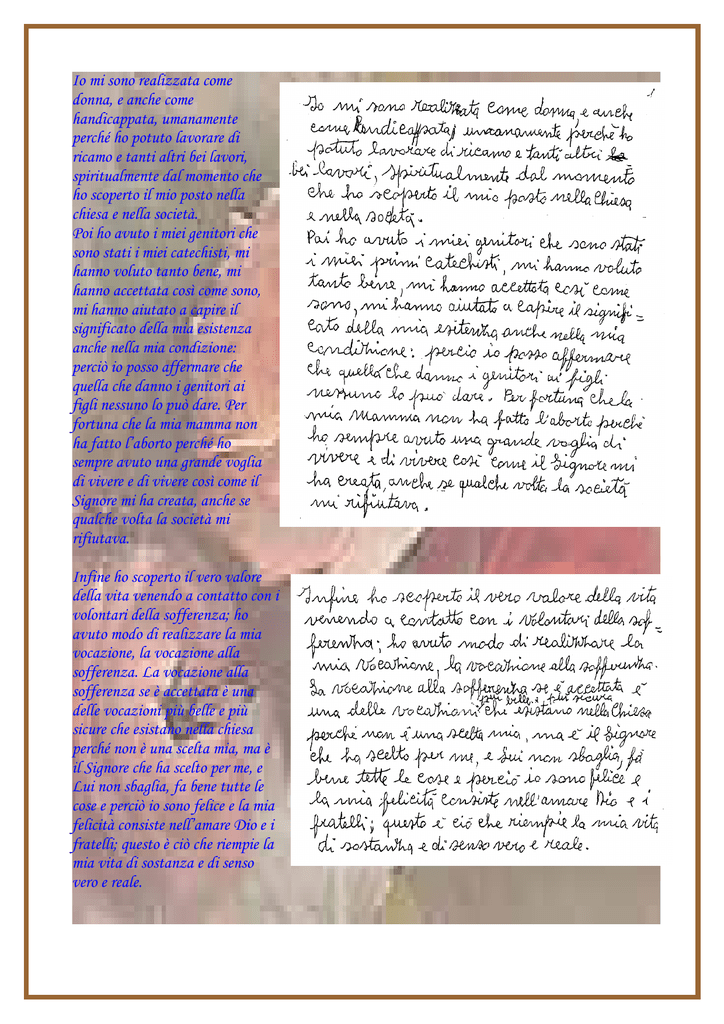 Io mi sono realizzata come
donna, e anche come
handicappata, umanamente
perché ho potuto lavorare di
ricamo e tanti altri bei lavori,
spiritualmente dal momento che
ho scoperto il mio posto nella
chiesa e nella società.
Poi ho avuto i miei genitori che
sono stati i miei catechisti, mi
hanno voluto tanto bene, mi
hanno accettata così come sono,
mi hanno aiutato a capire il
significato della mia esistenza
anche nella mia condizione:
perciò io posso affermare che
quella che danno i genitori ai
figli nessuno lo può dare. Per
fortuna che la mia mamma non
ha fatto l'aborto perché ho
sempre avuto una grande voglia
di vivere e di vivere così come il
Signore mi ha creata, anche se
qualche volta la società mi
rifiutava.
Infine ho scoperto il vero valore
della vita venendo a contatto con i
volontari della sofferenza; ho
avuto modo di realizzare la mia
vocazione, la vocazione alla
sofferenza. La vocazione alla
sofferenza se è accettata è una
delle vocazioni più belle e più
sicure che esistano nella chiesa
perché non è una scelta mia, ma è
il Signore che ha scelto per me, e
Lui non sbaglia, fa bene tutte le
cose e perciò io sono felice e la mia
felicità consiste nell'amare Dio e i
fratelli; questo è ciò che riempie la
mia vita di sostanza e di senso
vero e reale.
Io mi sono realizzata come donna, e anche
come handicappata, umanamente perchè ho
potuto lavorare di ricamo e tanti altri
bei lavori, spiritualmente dal momento
che ho scoperto il mio posto nella Chiesa
e nella società.
Poi ho avuto i miei genitori che sono stati
i miei primi catechisti, mi hanno voluto
tanto bene, mi hanno accettata così come
sono, mi hanno aiutato a capire il signifi=
cato della mia esitenza anche nella mia
condizione: perciò io posso affermare
che quella che danno i genitori ai figli
nessuno lo può dare. Per fortuna che la
mia Mamma non ha fatto l'aborto perchè
ho sempre avuto una grande voglia di
vivere e di vivere così come il Signore mi
ha creata, anche se qualche volta la società
mi rifiutava.
Infine ho scoperto il vero valore della vita
venendo a contatto con i volontari della sof=
ferenza; ho avuto modo di realizzare la
mia vocazione, la vocazione alla sofferenza.
La vocazione alla sofferenza se è accettata è
più belle e più sicura
una delle vocazioni che esistano nella Chiesa
perchè non è una scelta mia, ma è il Signore
che ha scelto per me, e Lui non sbaglia, fà
bene tette le cose e perciò io sono filice e
la mia felicità consiste nell'amare Dio e i
fratelli; questo è ciò che riempie la mia vita
di sostanza e di senso vero e reale.